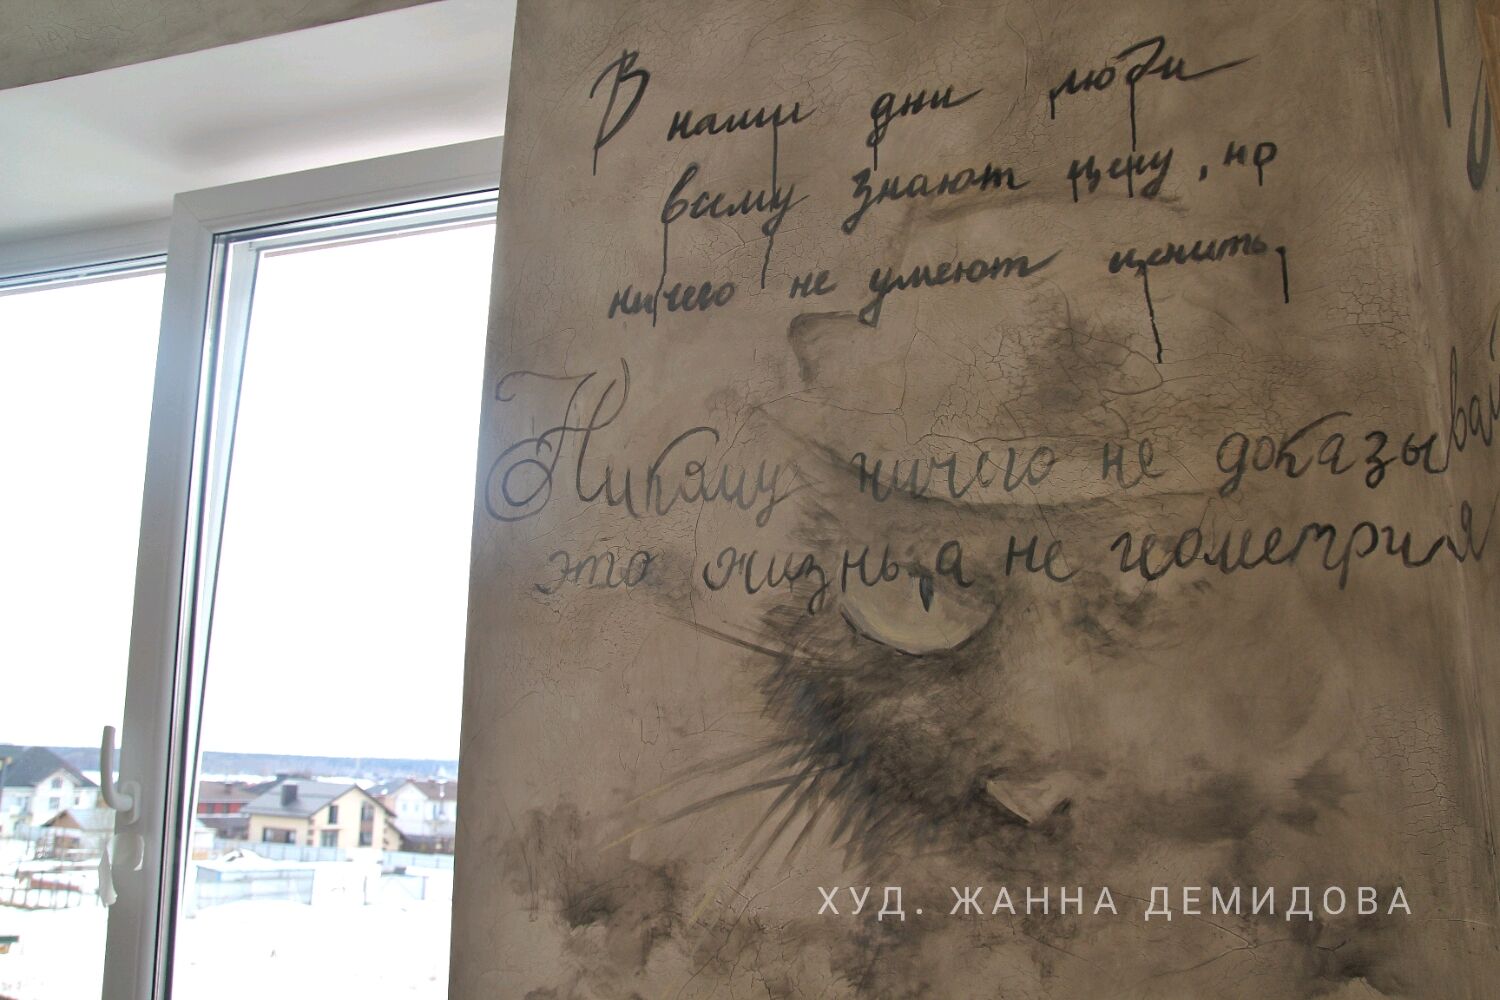 В наши дни люди
всему знают цену, но
ничего не умеют ценить.
Никому ничего не доказывай
это жизнь, а не геометрия
ХУД. ЖАННА ДЕМИДОВА